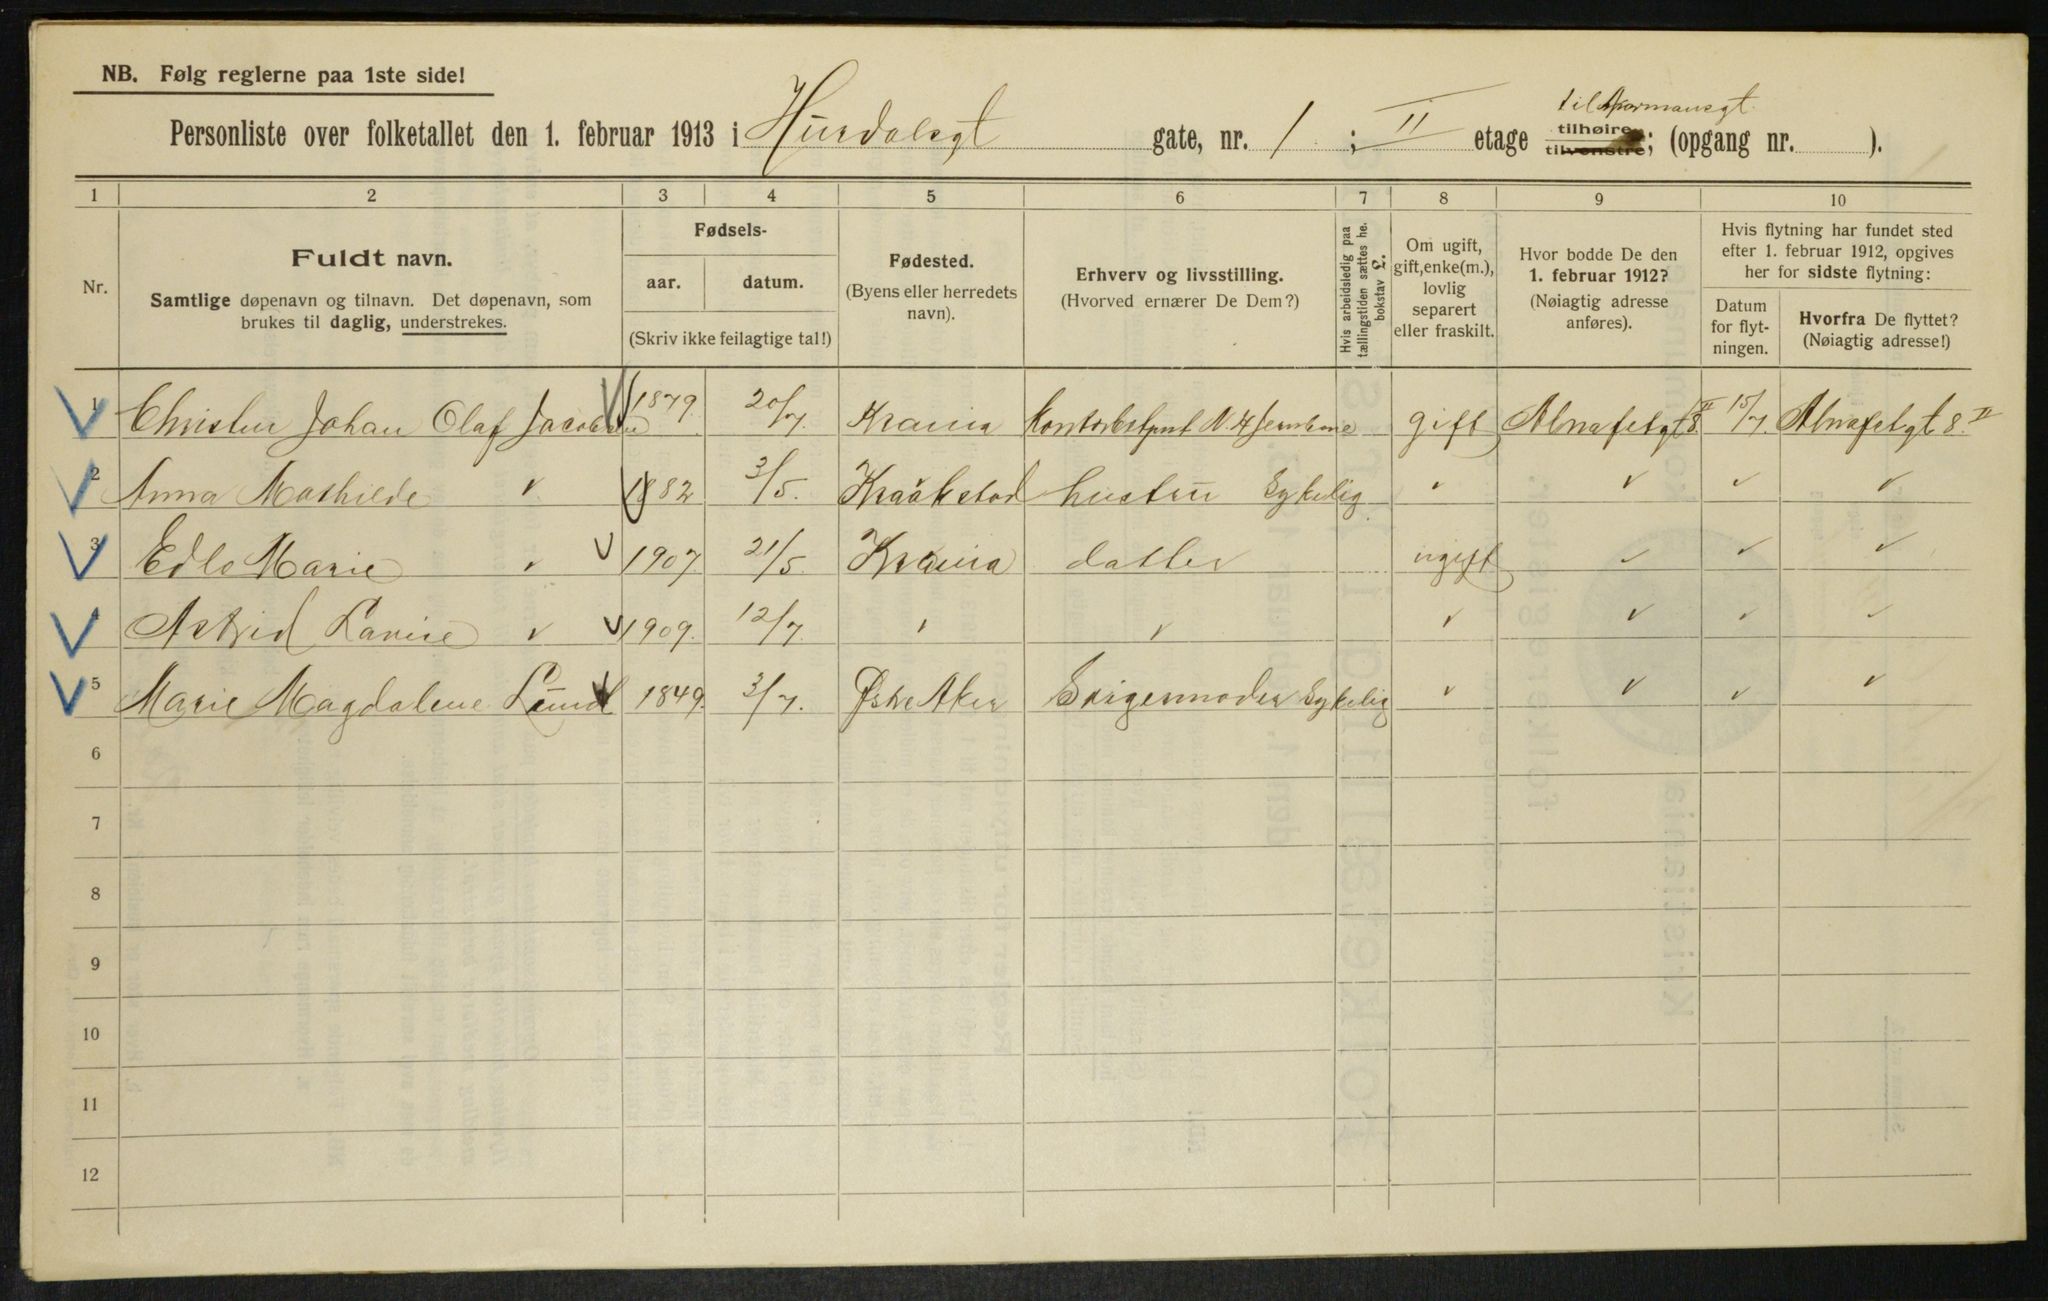 NB. Følg reglerne paa 1ste side!
Personliste over folketallet den 1. februar 1913 i Hurdalsgt gate, nr. 1 ; II etage tilhøire tilvenstre; (opgang nr. ).
1 2 3 4 5 6 7 8 9 10
Nr.
Fuldt navn.
Samtlige døpenavn og tilnavn. Det døpenavn, som
brukes til daglig, understrekes.
Fødsels-
aar. datum.
(Skriv ikke feilagtige tal!)
Fødested.
(Byens eller herredets
navn).
Erhverv og livsstilling.
(Hvorved ernærer De Dem?)
Hvis arbeidsledig paa
tællingstiden sættes her
bokstav L.
Om ugift,
gift, enke(m.),
lovlig
separert
eller fraskilt.
Hvor bodde De den
1. februar 1912?
(Nøiagtig adresse
anføres).
Hvis flytning har fundet sted
efter 1. februar 1912, opgives
her for sidste flytning:
Datum
for flyt-
ningen.
Hvorfra De flyttet?
(Nøiagtig adresse!)
1 Johan Olaf Jacobsen 1879. 20/7. Krania gift Alnafetgt 8 II 15/7. Alnafetgt 8. II
2 Anna Mathilde " 1882 3/5. Kraakstad hustru Sykelig " " " "
3 Edle Marie " 1907. 21/5 Krania datter ugift " " "
4 Astrid " 1909. 12/7. " " " " " "
5 Marie Magdalene Lund 1849. 3/7. Østre Aker Svigermoder Sykelig " " " "
6
7
8
9
10
11
12